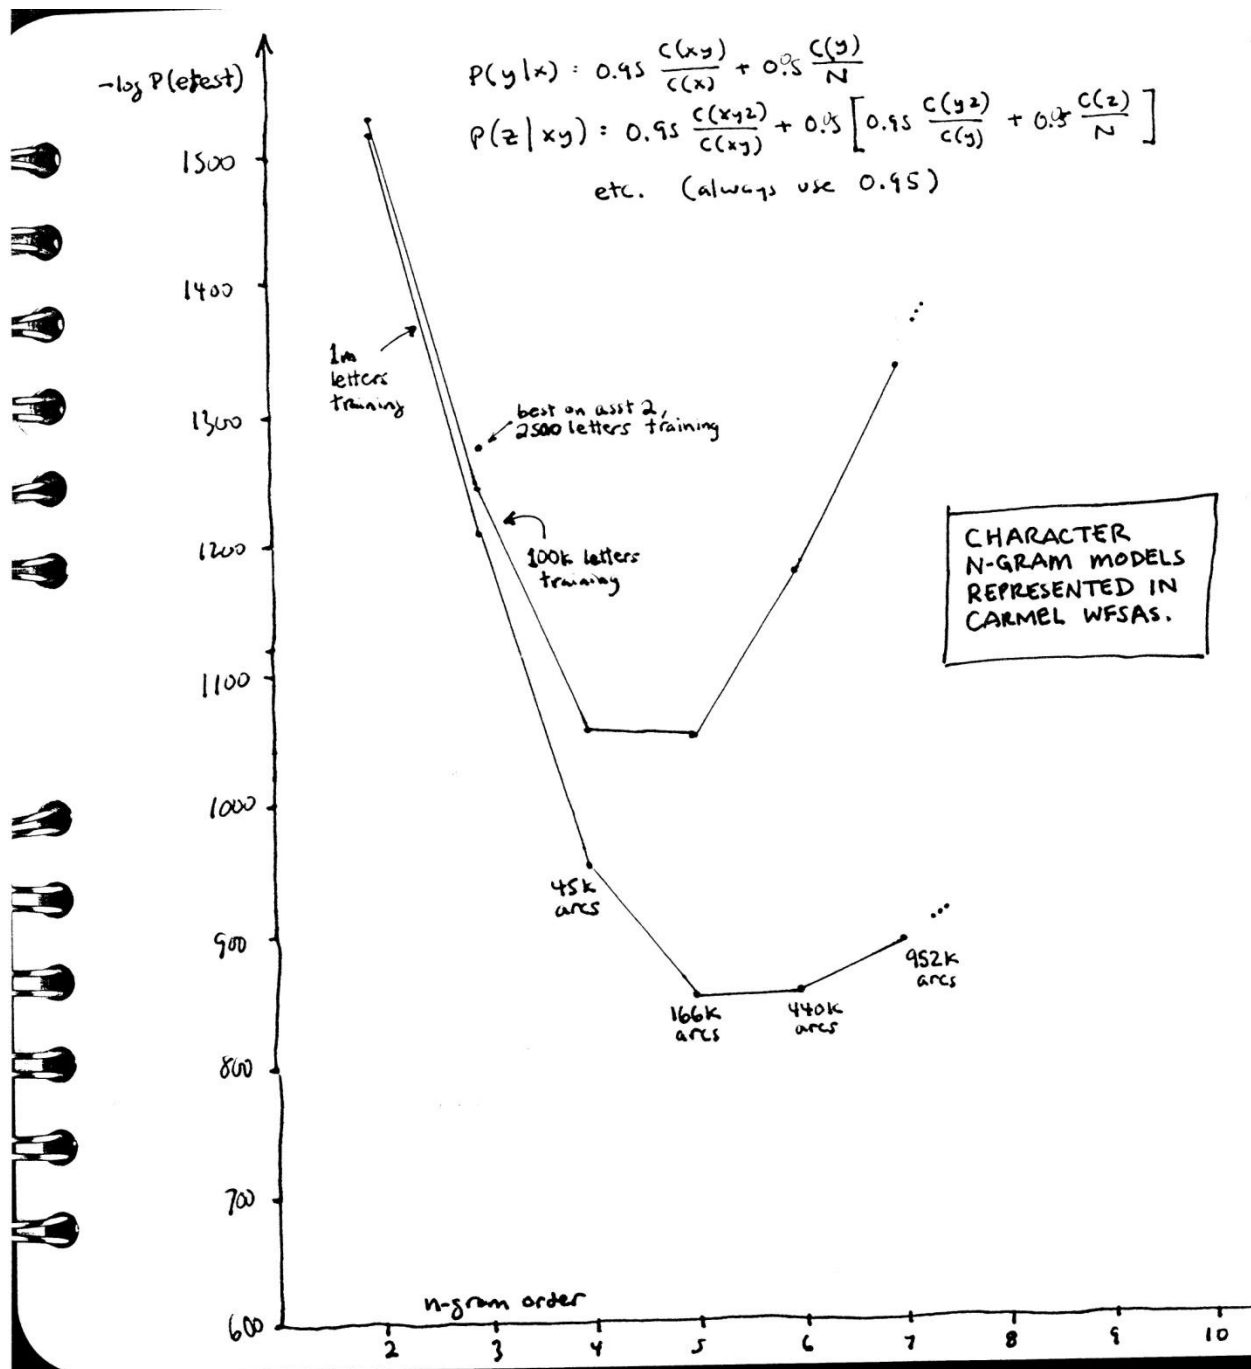 -log P(etest)
P(y|x) = 0.95 C(xy)/C(x) + 0.05 C(y)/N
P(z|xy) = 0.95 C(xyz)/C(xy) + 0.05 [0.95 C(yz)/C(y) + 0.05 C(z)/N]
etc. (always use 0.95)
1500
1400
1300
1200
1100
1000
900
800
700
600
1m
letters
training
best on asst 2,
2500 letters training
100k letters
training
CHARACTER
N-GRAM MODELS
REPRESENTED IN
CARMEL WFSAS.
45k
arcs
166k
arcs
440k
arcs
952k
arcs
n-gram order
2 3 4 5 6 7 8 9 10